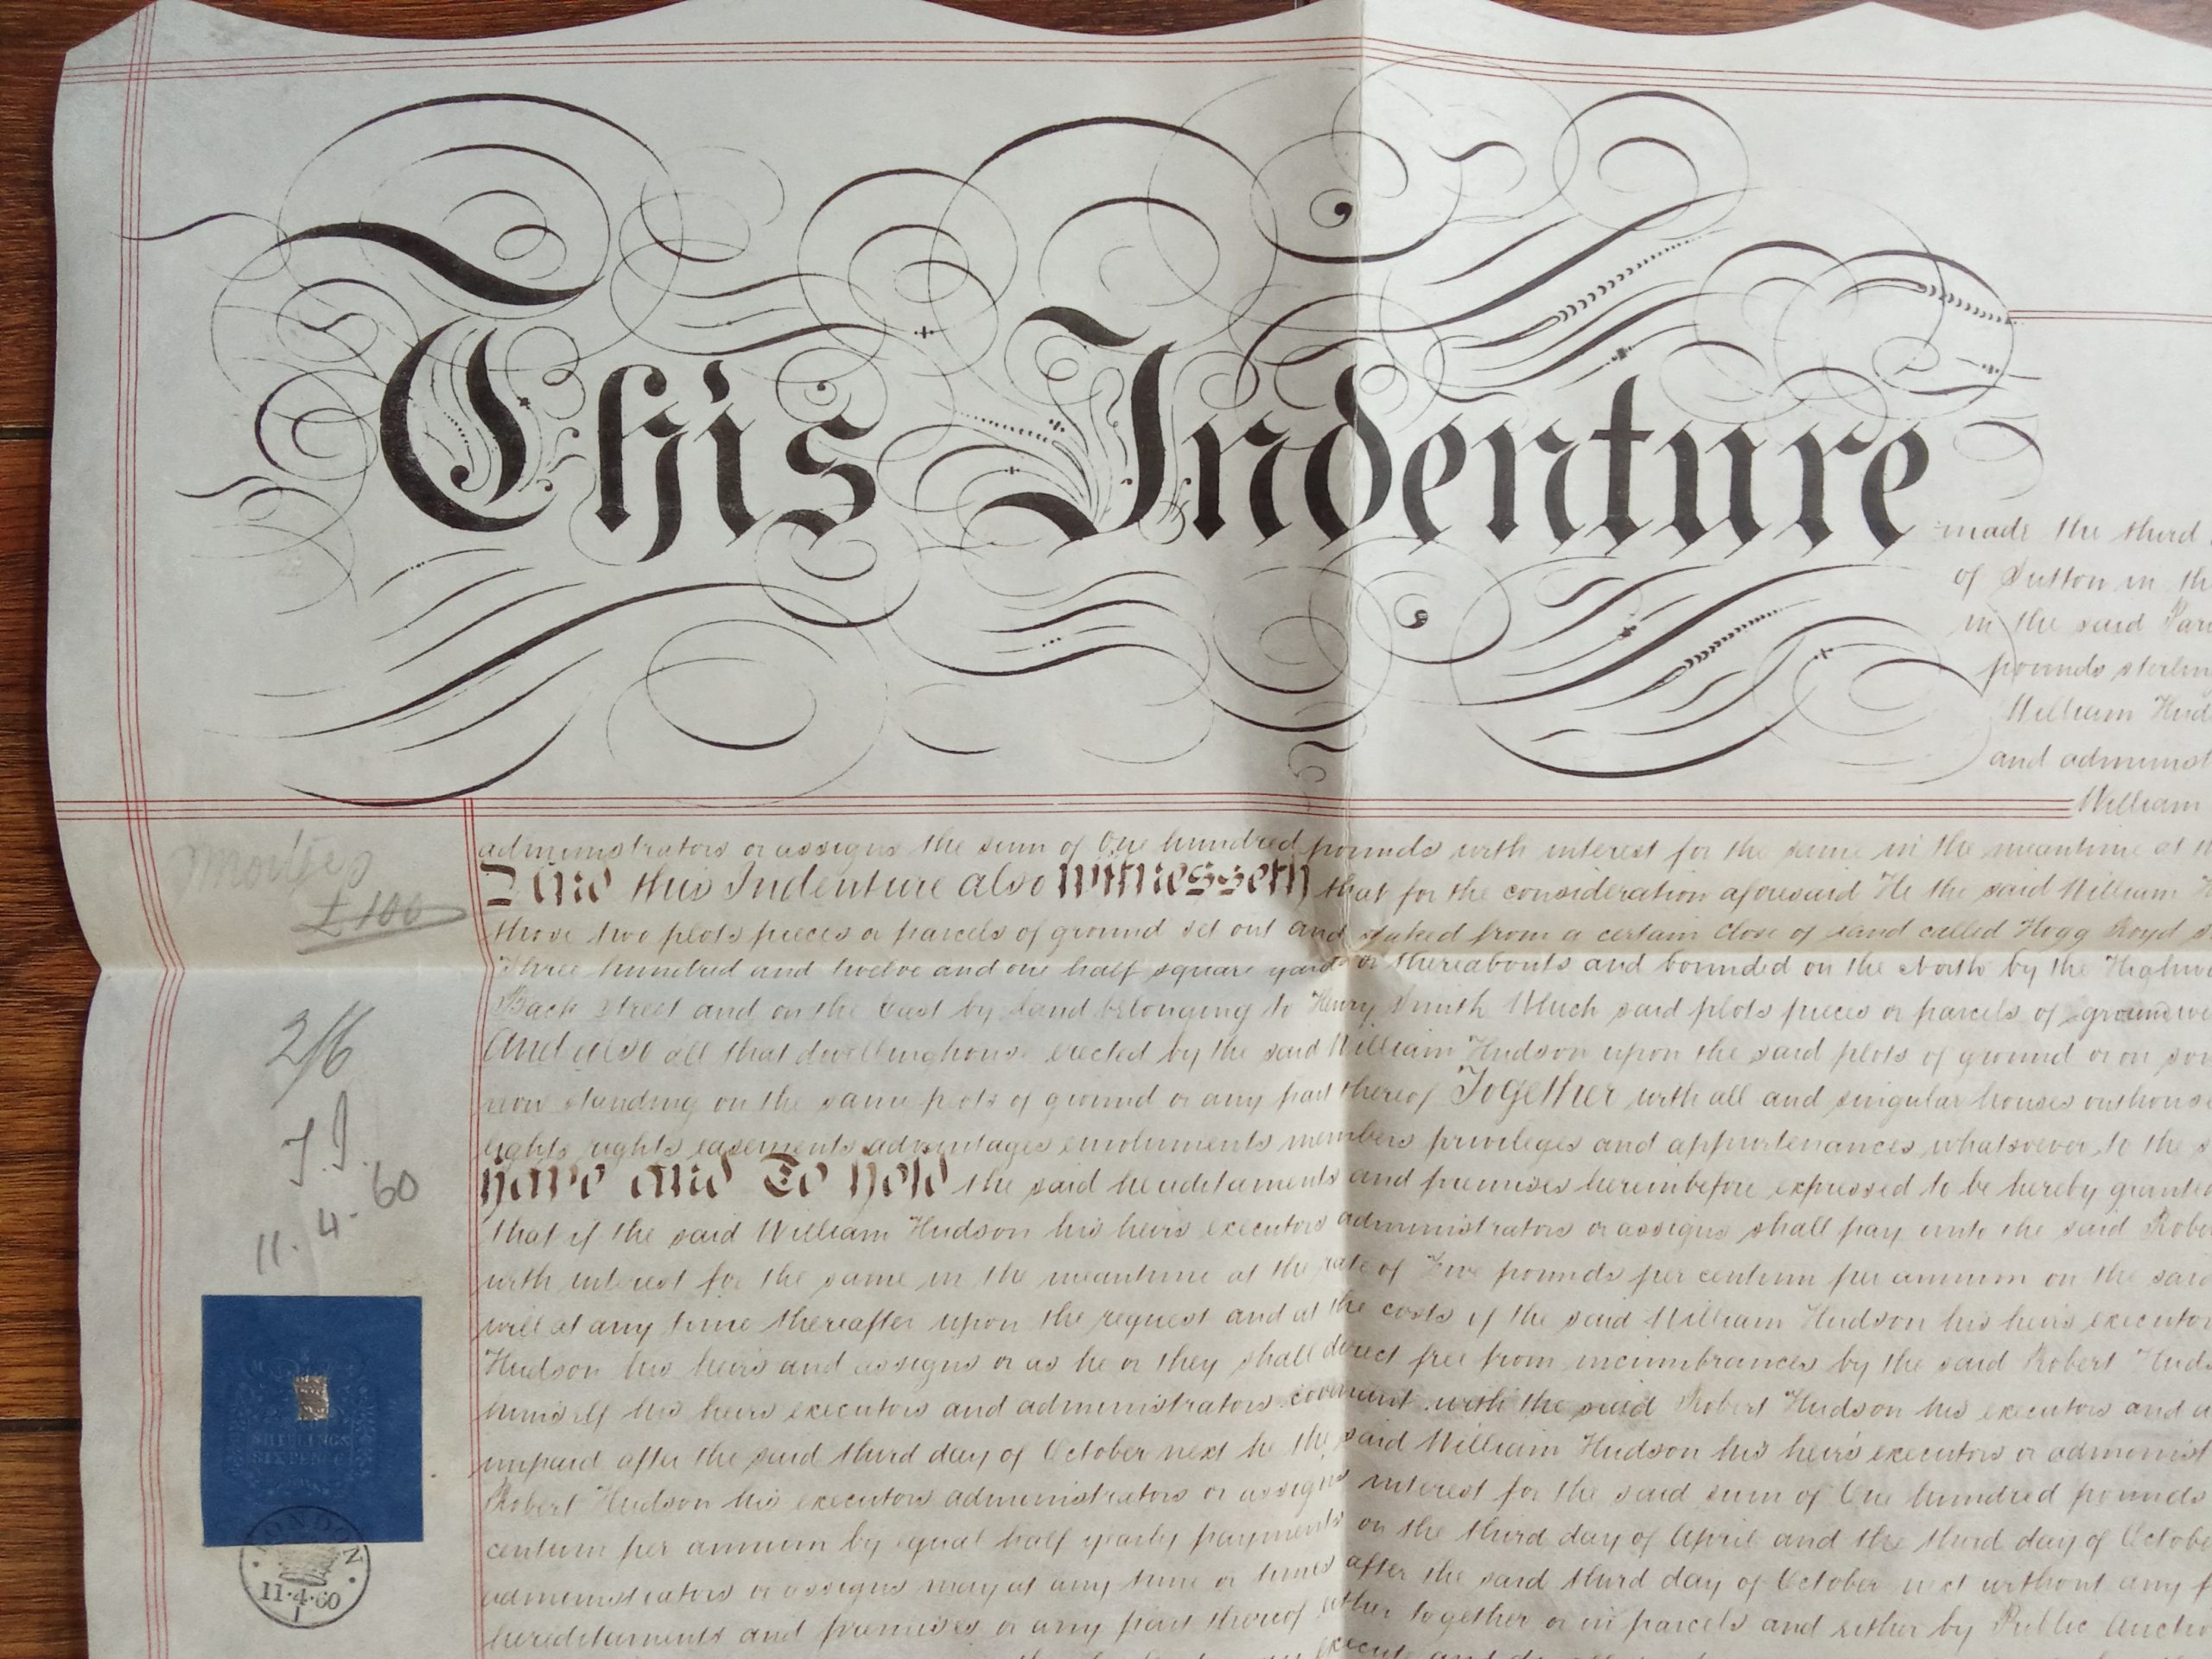 This Indenture
made the third
of Sutton in th
in the said Par
pounds sterlin
William Hud
and administ
William
administrators or assigns the sum of One hundred pounds with interest for the same in the meantime at th
And this Indenture also Witnesseth that for the consideration aforesaid He the said William H
those two plots pieces or parcels of ground set out and staked from a certain Close of land called Hogg Royd s
Three hundred and twelve and one half square yards or thereabouts and bounded on the North by the Highw
Back Street and on the East by land belonging to Henry Smith Which said plots pieces or parcels of ground we
And also all that dwellinghouse erected by the said William Hudson upon the said plots of ground or on som
now standing on the same plots of ground or any part thereof Together with all and singular houses outhouse
lights rights easements advantages emoluments members privileges and appurtenances whatsoever to the s
have and To hold the said hereditaments and premises hereinbefore expressed to be hereby granted
that if the said William Hudson his heirs executors administrators or assigns shall pay unto the said Rober
with interest for the same in the meantime at the rate of Five pounds per centum per annum on the said
will at any time thereafter upon the request and at the costs of the said William Hudson his heirs executor
Hudson his heirs and assigns or as he or they shall direct free from incumbrances by the said Robert Huds
himself his heirs executors and administrators covenant with the said Robert Hudson his executors and a
unpaid after the said third day of October next he the said William Hudson his heirs executors or administ
Robert Hudson his executors administrators or assigns interest for the said sum of One hundred pounds
centum per annum by equal half yearly payments on the third day of April and the third day of Octobe
administrators or assigns may at any time or times after the said third day of October next without any f
hereditaments and premises or any part thereof either together or in parcels and either by Public Auctio
£100
2/6
J.J.
11.4.60
SHILLINGS
SIXPENCE
LONDON
11.4.60